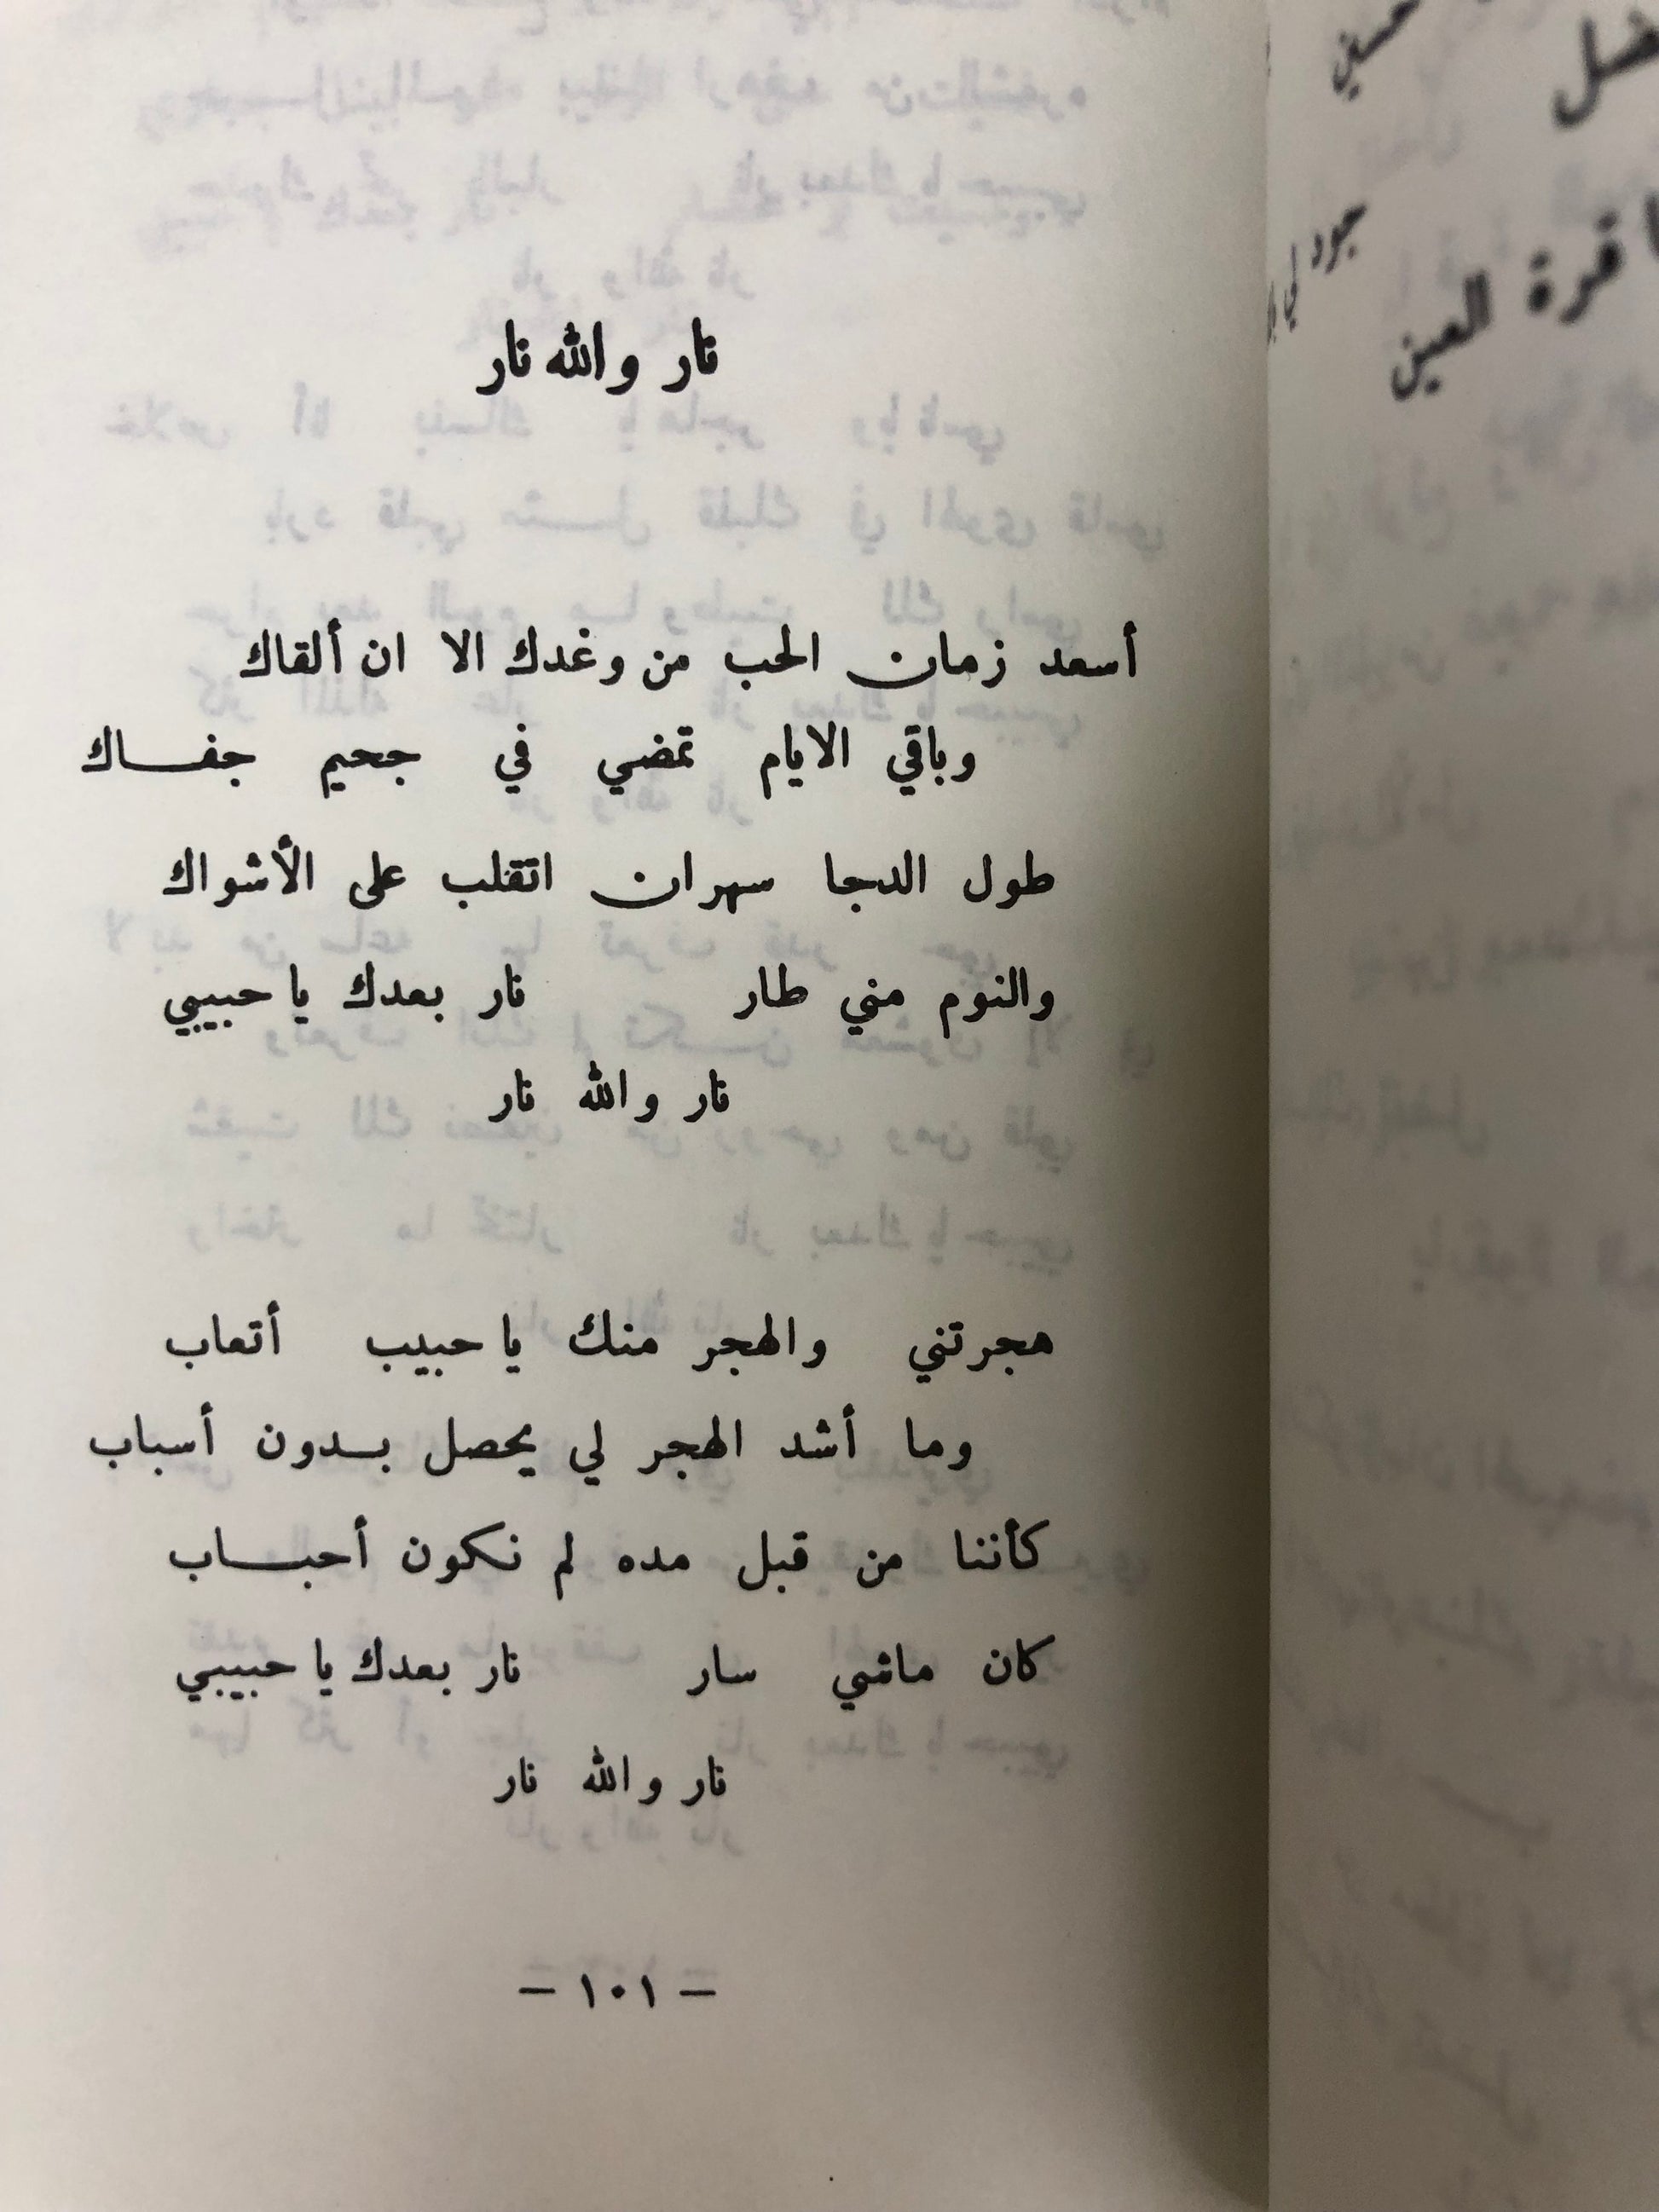 نار والله نار
أسعد زمان الحب من وغدك الا ان ألقاك
وباقي الايام تمضي في جحيم جفاك
طول الدجا سهران اتقلب على الأشواك
والنوم مني طار نار بعدك يا حبيبي
نار والله نار
هجرتني والهجر منك يا حبيب أتعاب
وما أشد الهجر لي يحصل بدون أسباب
كأننا من قبل مده لم نكون أحباب
كان ماشي سار نار بعدك يا حبيبي
نار والله نار
– ١٠١ –
جود لي
قرة العين